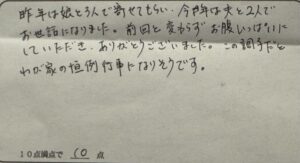 昨年は娘と3人で寄せてもらい、今年は夫と2人で
お世話になりました。前回と変わらずお腹いっぱいに
していただき、ありがとうございました。この調子だと
わが家の恒例行事になりそうです。
10点満点で 10 点